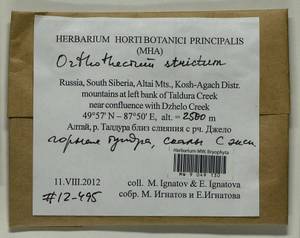 HERBARIUM HORTI BOTANICI PRINCIPALIS
(MHA)
Orthothecium strictum
Russia, South Siberia, Altai Mts., Kosh-Agach Distr.
mountains at left bank of Taldura Creek
near confluence with Dzhelo Creek
49°57' N – 87°50' E, alt. = 2500 m
Алтай, р. Талдура близ слияния с рч. Джело
горная тундра, скалы С экси.
Herbarium MW, Bryophyta
MW 9 049 130
11.VIII.2012
coll. M. Ignatov & E. Ignatova
#12-495
собр. М. Игнатов и Е.Игнатова